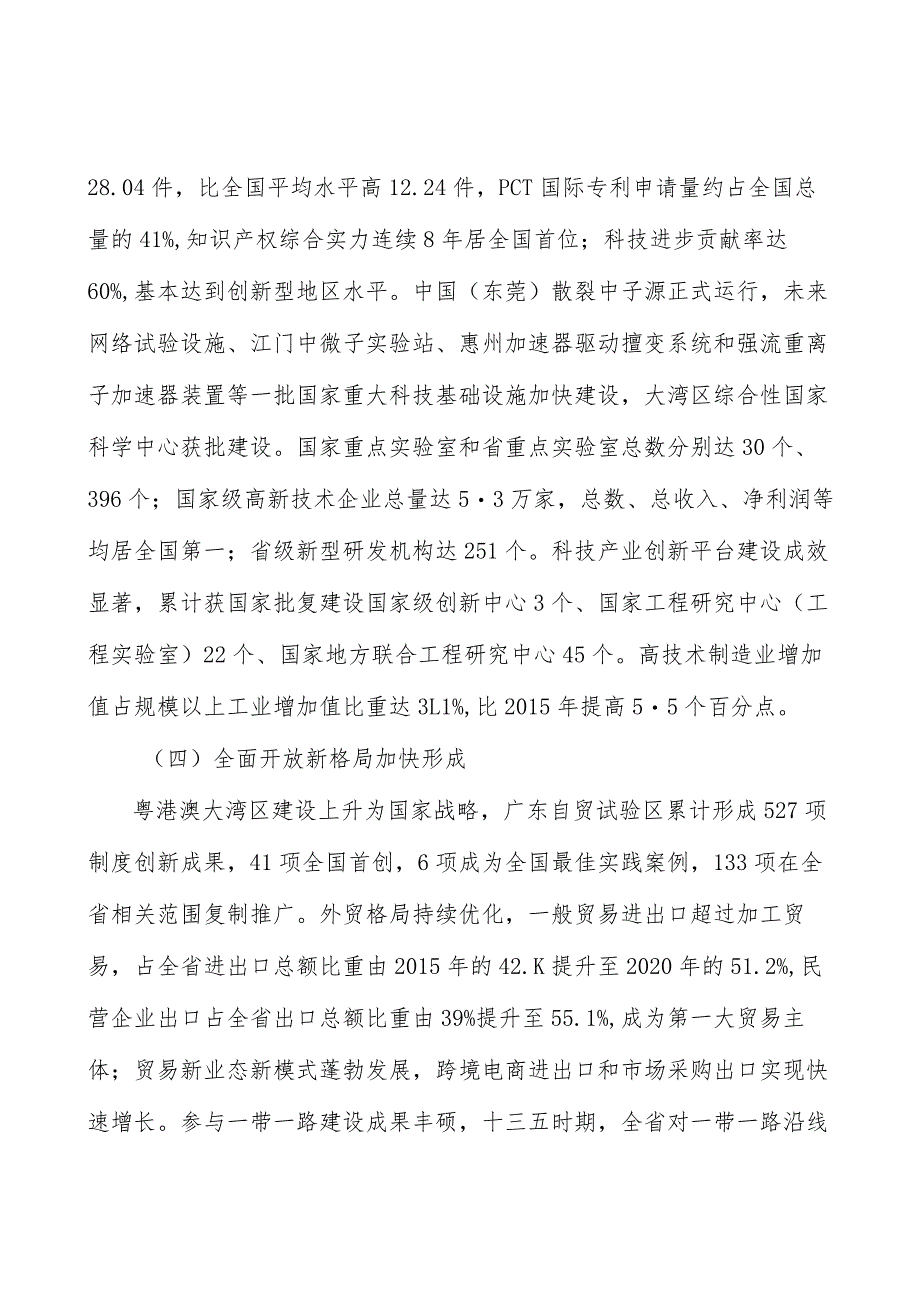 28.04件，比全国平均水平高12.24件，PCT国际专利申请量约占全国总
量的41%,知识产权综合实力连续8年居全国首位；科技进步贡献率达
60%,基本达到创新型地区水平。中国（东莞）散裂中子源正式运行，未来
网络试验设施、江门中微子实验站、惠州加速器驱动擅变系统和强流重离
子加速器装置等一批国家重大科技基础设施加快建设，大湾区综合性国家
科学中心获批建设。国家重点实验室和省重点实验室总数分别达30个、
396个；国家级高新技术企业总量达5・3万家，总数、总收入、净利润等
均居全国第一；省级新型研发机构达251个。科技产业创新平台建设成效
显著，累计获国家批复建设国家级创新中心3个、国家工程研究中心（工
程实验室）22个、国家地方联合工程研究中心45个。高技术制造业增加
值占规模以上工业增加值比重达3L1%,比2015年提高5・5个百分点。
（四）全面开放新格局加快形成
粤港澳大湾区建设上升为国家战略，广东自贸试验区累计形成527项
制度创新成果，41项全国首创，6项成为全国最佳实践案例，133项在全
省相关范围复制推广。外贸格局持续优化，一般贸易进出口超过加工贸
易，占全省进出口总额比重由2015年的42.K提升至2020年的51.2%,民
营企业出口占全省出口总额比重由39%提升至55.1%,成为第一大贸易主
体；贸易新业态新模式蓬勃发展，跨境电商进出口和市场采购出口实现快
速增长。参与一带一路建设成果丰硕，十三五时期，全省对一带一路沿线